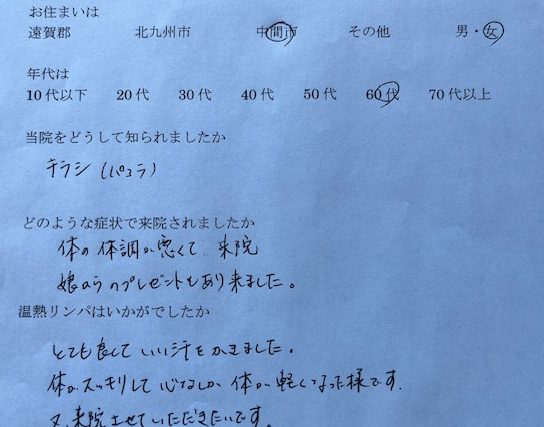 お住まいは
遠賀郡 北九州市 中間市 その他 男・女
年代は
10代以下 20代 30代 40代 50代 60代 70代以上
当院をどうして知られましたか
チラシ(パコラ)
どのような症状で来院されましたか
体の体調が悪くて、来院
娘からのプレゼントもあり来ました。
温熱リンパはいかがでしたか
とても良くていい汗をかきました。
体がスッキリして心なしか体が軽くなった様です.
又、来院させていただきたいです。